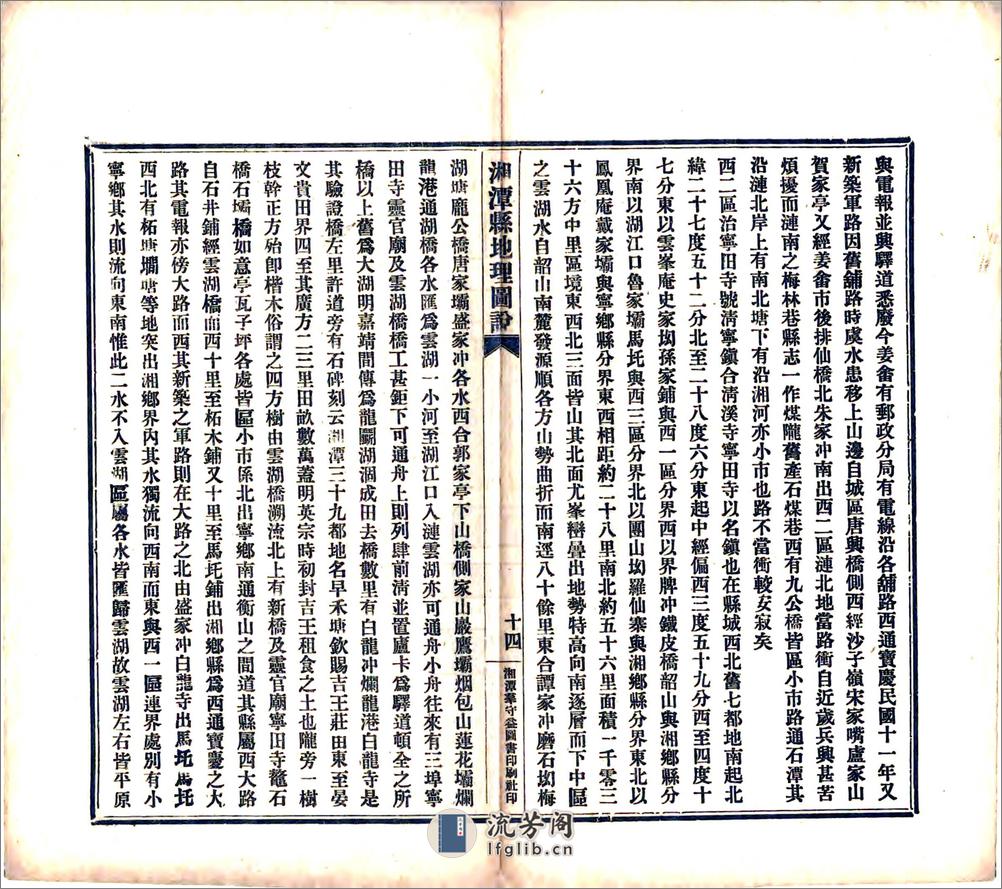 與電報並興驛道悉廢今姜畬有郵政分局有電線沿各舖路西通寶慶民國十一年又
新築軍路因舊舖路時虞水患移上山邊自城區唐興橋側西經沙子嶺宋家嘴盧家山
賀家亭又經姜畬市後排仙橋北朱家冲南出西二區漣北地當路衝自近歲兵興甚苦
煩擾而漣南之梅林巷縣志一作煤隴舊產石煤巷西有九公橋皆區小市路通石潭其
沿漣北岸上有南北塘下有沿湘河亦小市也路不當衝較安寂矣
西二區治寧田寺號清寧鎮合清溪寺寧田寺以名鎮也在縣城西北舊七都地南起北
緯二十七度五十二分北至二十八度六分東起中經偏西三度五十九分西至四度十
七分東以雲峯庵史家坳孫家舖與西一區分界西以界牌冲鐵皮橋韶山與湘鄉縣分
界南以湖江口魯家壩馬圫與西三區分界北以團山坳羅仙寨與湘鄉縣分界東北以
鳳凰庵戴家壩與寧鄉縣分界東西相距約二十八里南北約五十六里面積一千零三
十六方中里區境東西北三面皆山其北面尤峯巒疊出地勢特高向南逐層而下中區
之雲湖水自韶山南麓發源順各方山勢曲折而南逕八十餘里東合譚家冲磨石坳梅
湘潭縣地理圖說
十四
湘潭業守益圖書印刷社印
湖塘龐公橋唐家壩盛家冲各水西合郭家亭下山橋側家山嚴鷹壩烟包山蓮花壩爛
龍港通湖橋各水匯爲雲湖一小河至湖江口入漣雲湖亦可通舟小舟往來有三埠寧
田寺靈官廟及雲湖橋橋工甚鉅下可通舟上則列肆前淸並置廬卡爲驛道頓全之所
橋以上舊爲大湖明嘉靖間傳爲龍鬭湖涸成田去橋數里有白龍冲爛龍港白龍寺是
其驗證橋左里許道旁有石碑刻云湘潭三十九都地名早禾塘欽賜吉王莊田東至晏
文貴田界四至其廣方二三里田畝數萬蓋明英宗時初封吉王租食之土也隴旁一樹
枝幹正方殆卽楷木俗謂之四方樹由雲湖橋溯流北上有新橋及靈官廟寧田寺鼇石
橋石壩橋如意亭瓦子坪各處皆區小市係北出寧鄉南通衡山之間道其縣屬西大路
自石井鋪經雲湖橋而西十里至柘木鋪又十里至馬圫鋪出湘鄉縣爲西通寶慶之大
路其電報亦傍大路而西其新築之軍路則在大路之北由盛家冲白龍寺出馬圫馬圫
西北有柘塘㘓塘等地突出湘鄉界內其水獨流向西南而東與西一區連界處別有小
寧鄉其水則流向東南惟此二水不入雲湖區屬各水皆匯歸雲湖故雲湖左右皆平原
流芳阁
lfglib.cn